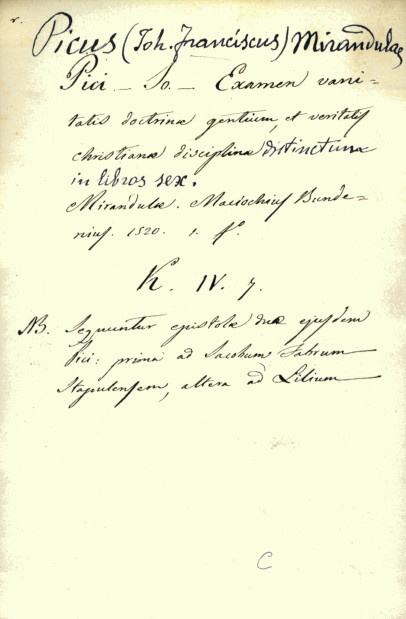 r.
Picus (Joh. Franciscus) Mirandulæ
Pici _ Jo. _ Examen vani-
tatis doctrinæ gentium, et veritatis
christianæ disciplinæ distinctum
in libros sex.
Mirandulæ. Maciochius Bunde-
nius. 1520. 1. fº.
K. IV. 7.
NB. Sequuntur epistolæ duæ ejusdem
Pici: prima ad Jacobum Fabrum
Stapulensem, altera ad Lilium
C